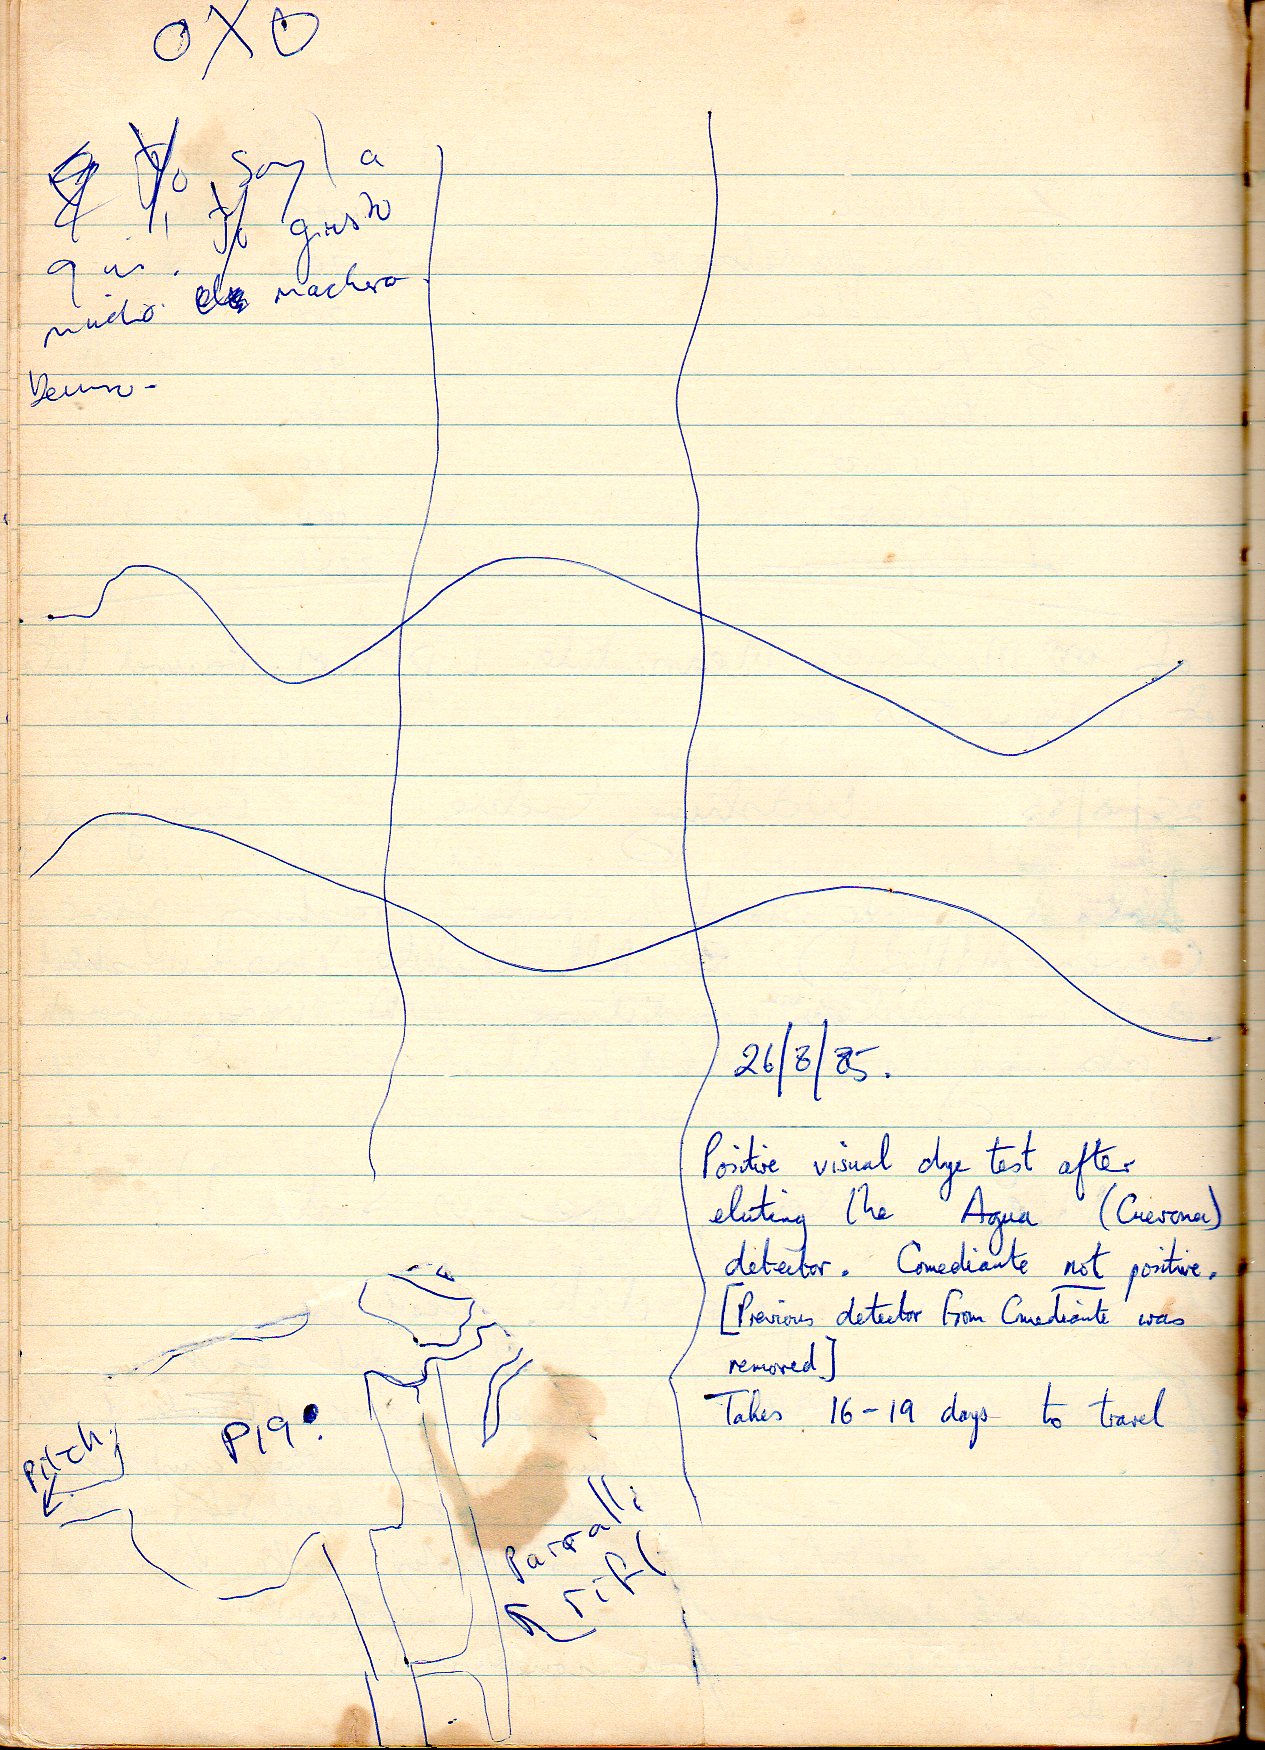 OXO
Yo soy la
que. Yo gusto
mucho de machero.
26/8/85.
Positive visual dye test after
eluting the Agua (Cuevona)
detector. Comediante not positive.
[Previous detector from Comediante was
removed]
Takes 16-19 days to travel
P19
Pitch
Parralli
rift